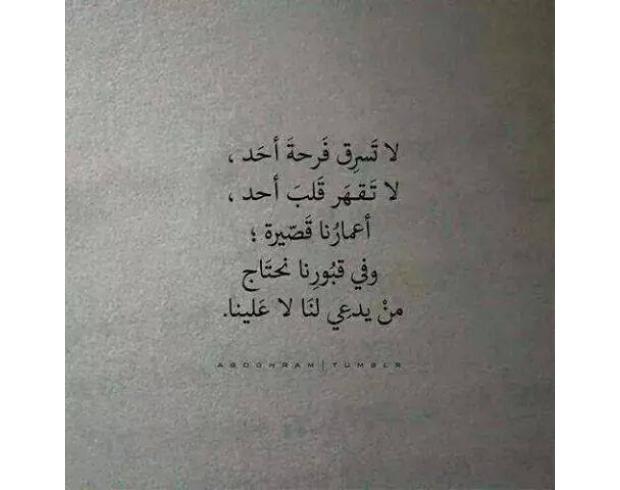 لا تَسرِق فَرحةَ أحَد ،
لا تَـقـهَر قَلبَ أحد ،
أعمارُنا قَصّيرة ؛
وفي قبُورِنا نحتَاج
منْ يدعِي لنَا لا عَلينا.
ABOOHRAM | TUMBLR